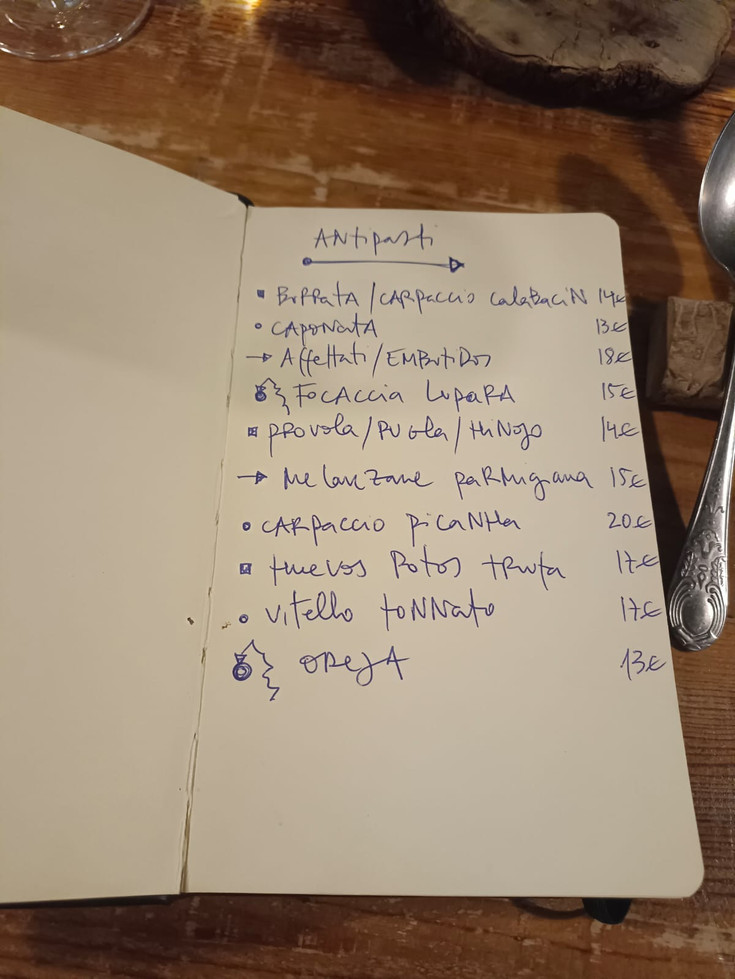 ANtipasti
BURRATA / CARPACCIO CALABACIN 14€
CAPONATA 13€
Affettati / EMBUTIDOS 18€
FOCACCIA LUPARA 15€
PROVOLA / RUGLA / HINOJO 14€
MELANZANE PARMIGIANA 15€
CARPACCIO PICANHA 20€
HUEVOS ROTOS TRUFA 17€
Vitello TONNATO 17€
OREJA 13€